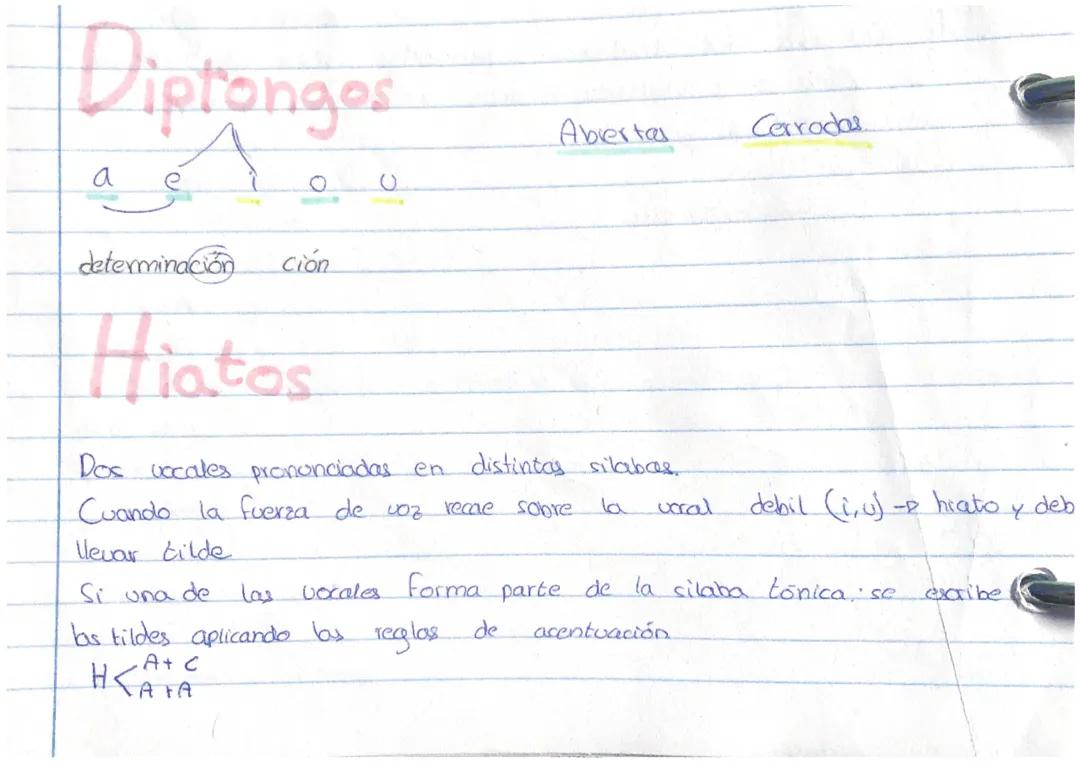 Diptongos
Abiertas Cerradas
a e i o u
determinación ción
Hiatos
Dos vocales pronunciadas en distintas silabas.
Cuando la fuerza de voz recae sobre la vocal debil (i,u) → hiato y deb
llevar tilde
Si una de las vocales forma parte de la silaba tónica: se escribe
las tildes aplicando las reglas de acentuación
H < A + C
A + A